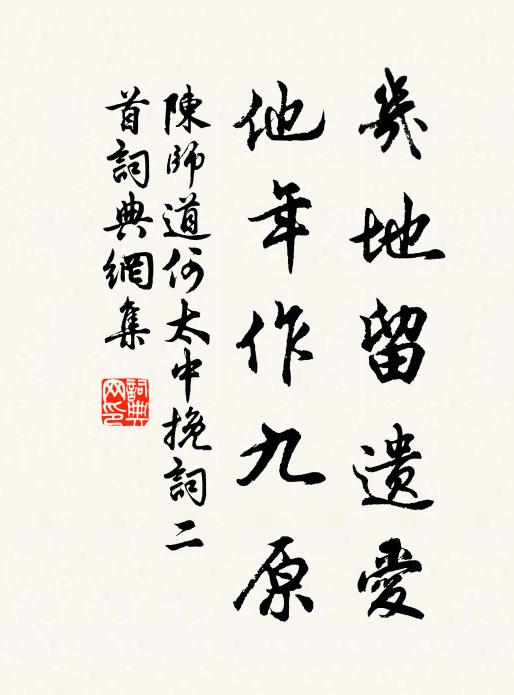 幾地留遺愛
他年作九原
陳師道何太中挽詞二
首詞典網集
詞典
网印